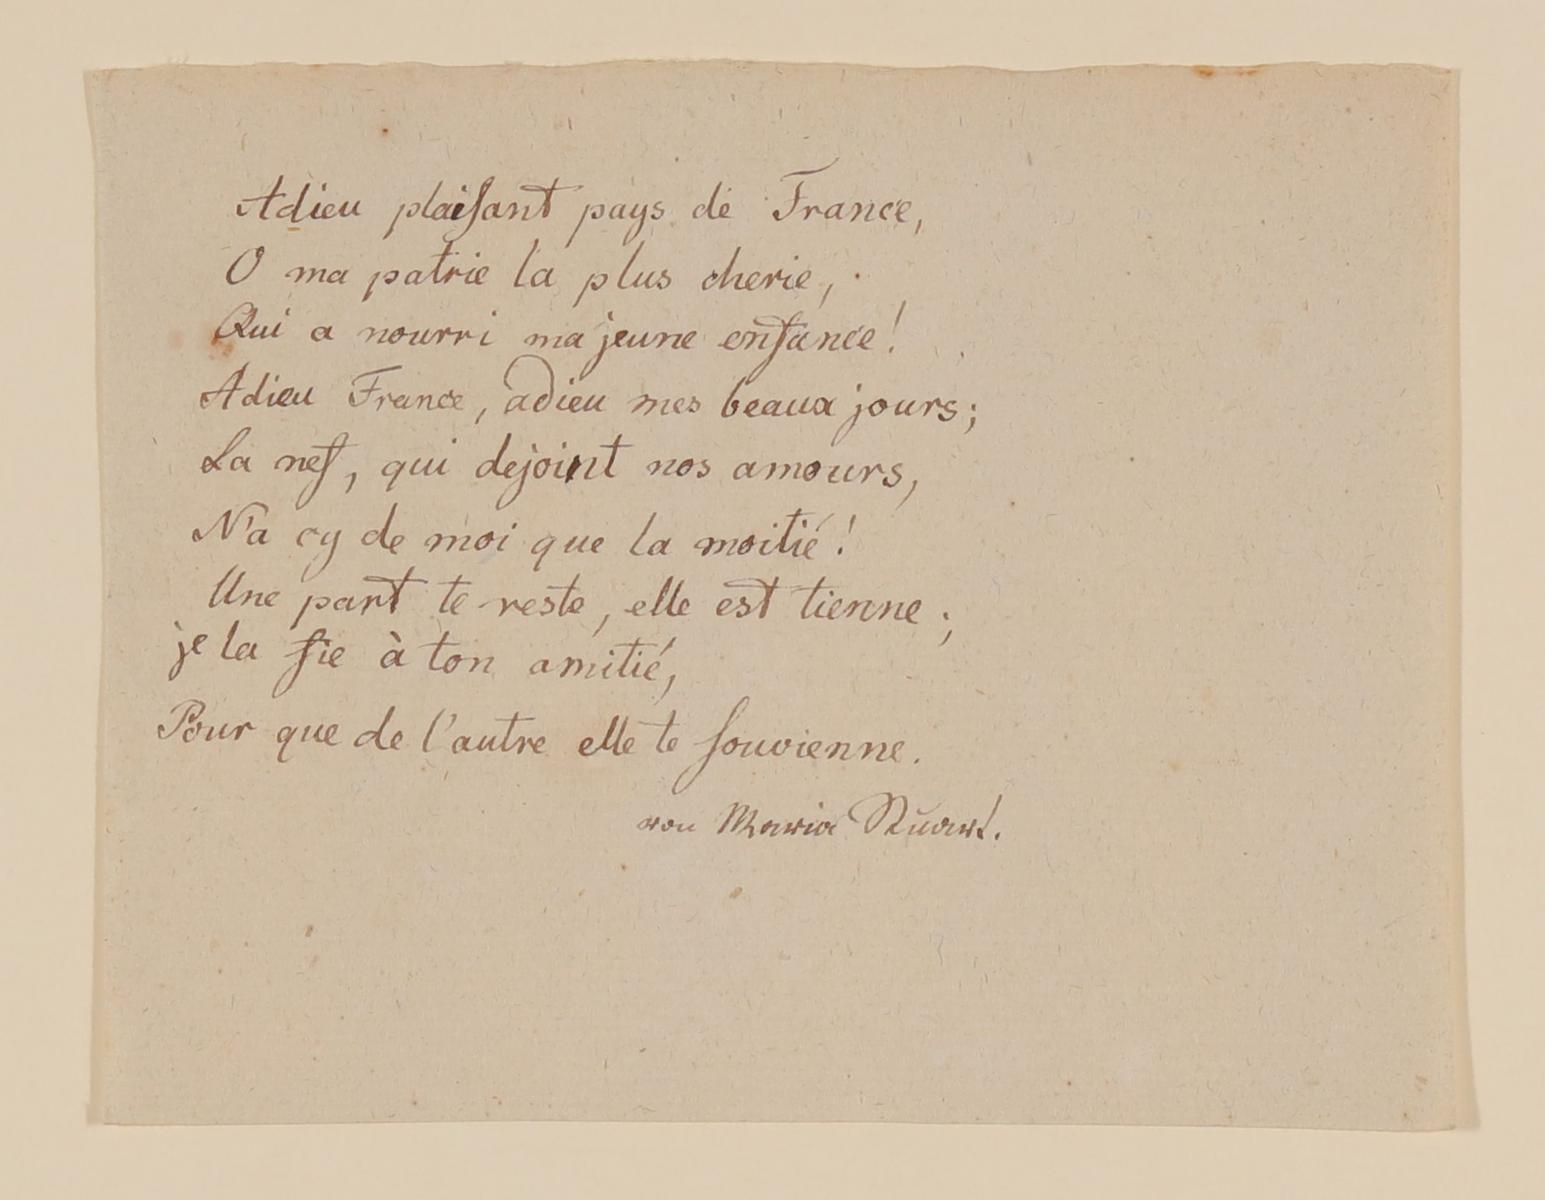 Adieu plaiſant pays de France,
O ma patrie la plus cherie,
Qui a nourri ma jeune enfance!
Adieu France, adieu mes beaux jours;
La nef, qui dejoint nos amours,
N'a cy de moi que la moitié!
Une part te reste, elle est tienne;
je la fie à ton amitié,
Pour que de l'autre elle te ſouvienne.
von Maria Stuart.